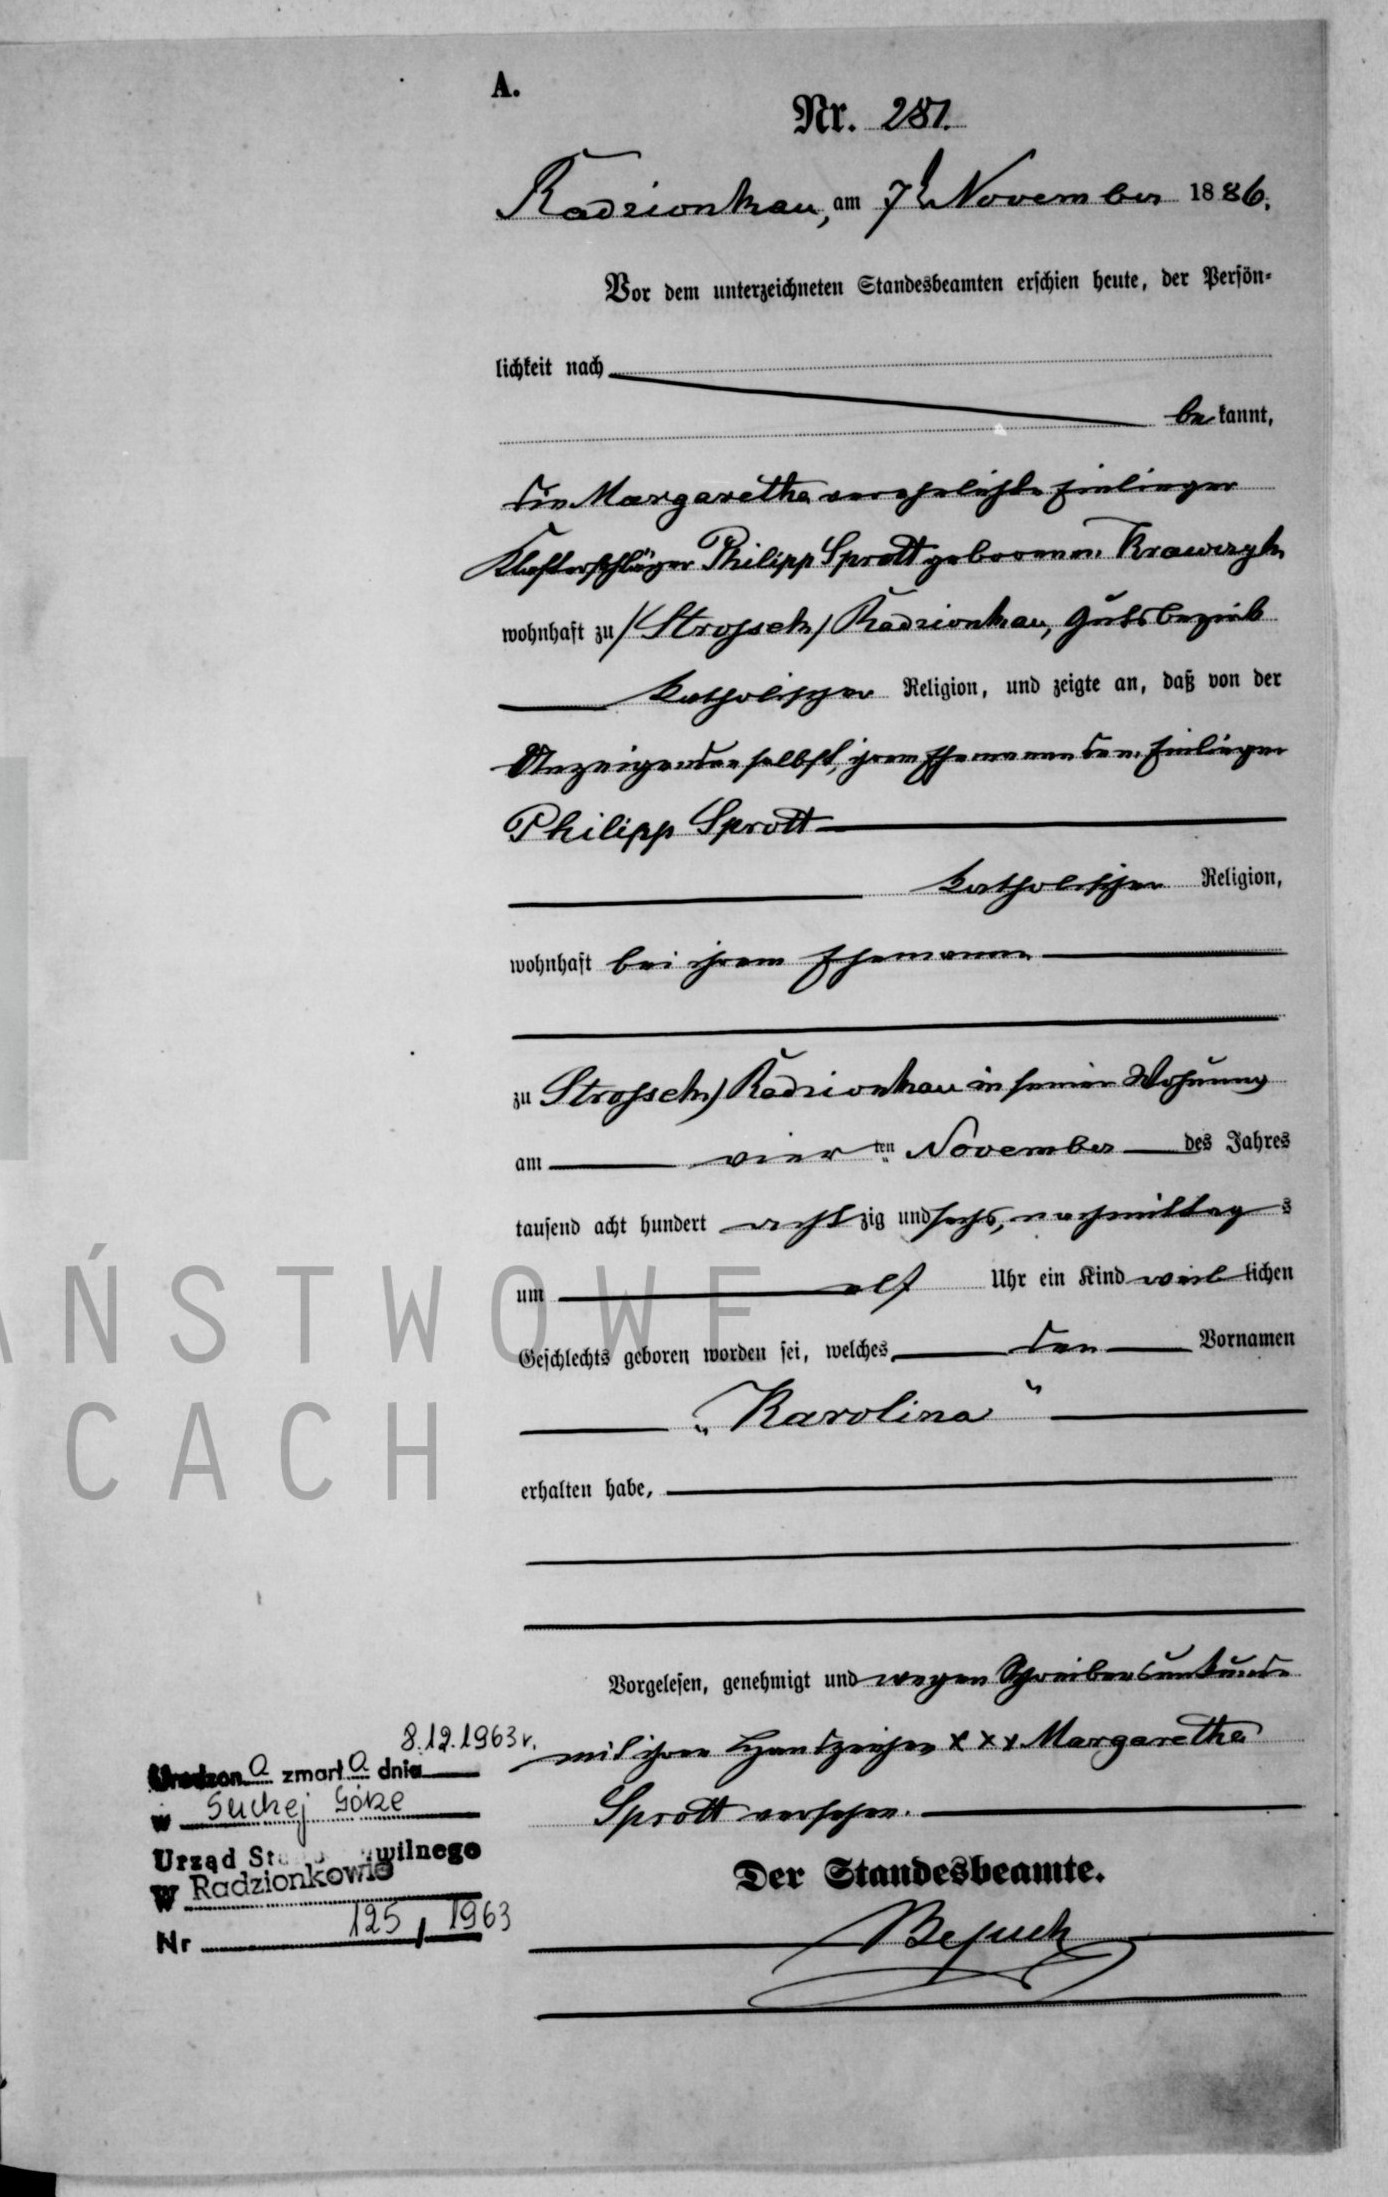 A.
Nr. 281.
Radzionkau, am 7t November 1886.
Vor dem unterzeichneten Standesbeamten erschien heute, der Persön-
lichkeit nach
be kannt,
die Margaretha verehelichte Einlieger
Klafterschläger Philipp Sprott geborene Krawczyk
wohnhaft zu /Strossek/ Radzionkau, Gutsbezirk
katholischer Religion, und zeigte an, daß von der
Anzeigenden selbst, ihrem Ehemanne dem Einlieger
Philipp Sprott
katholischer Religion,
wohnhaft bei ihrem Ehemanne
zu Strossek) Radzionkau in seiner Wohnung
am vier ten November des Jahres
tausend acht hundert acht zig und sechs, nachmittag s
um elf Uhr ein Kind weib lichen
Geschlechts geboren worden sei, welches den Vornamen
„Karolina“
erhalten habe,
Vorgelesen, genehmigt und wegen Schreibensunkunde
mit ihren Handzeichen xxx Margaretha
Sprott versehen.
Der Standesbeamte.
8.12.1963 r.
Urodzon a zmarł a dnia
w Suchej Górze
Urząd St wilnego
w Radzionkowie
Nr 125 / 1963
ŃSTWOWE
CACH